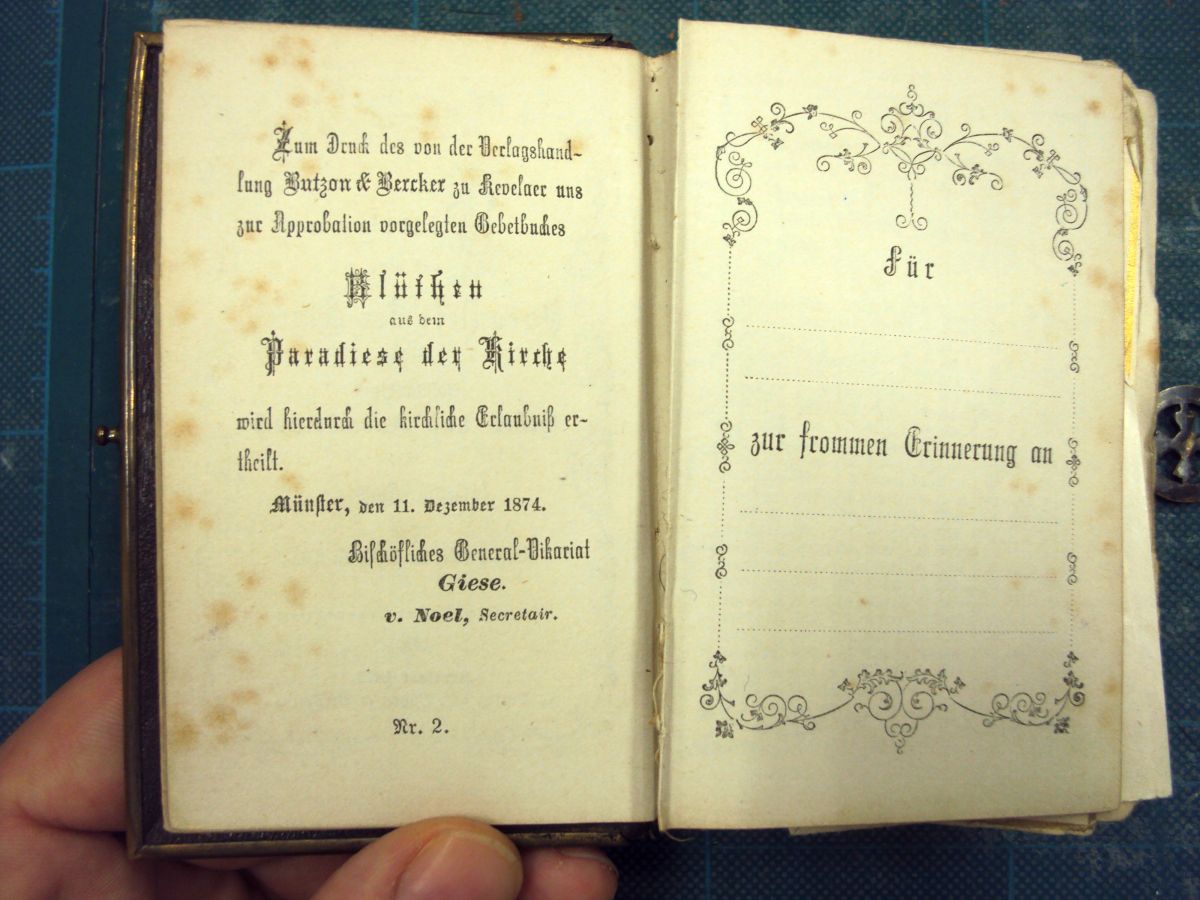 Zum Druck des von der Verlagshand-
lung Butzon & Bercker zu Kevelaer uns
zur Approbation vorgelegten Gebetbuches
Blüthen
aus dem
Paradiese der Kirche
wird hierdurch die kirchliche Erlaubniß er-
theilt.
Münster, den 11. Dezember 1874.
Bischöfliches General-Vikariat
Giese.
v. Noel, Secretair.
Nr. 2.
Für
zur frommen Erinnerung an